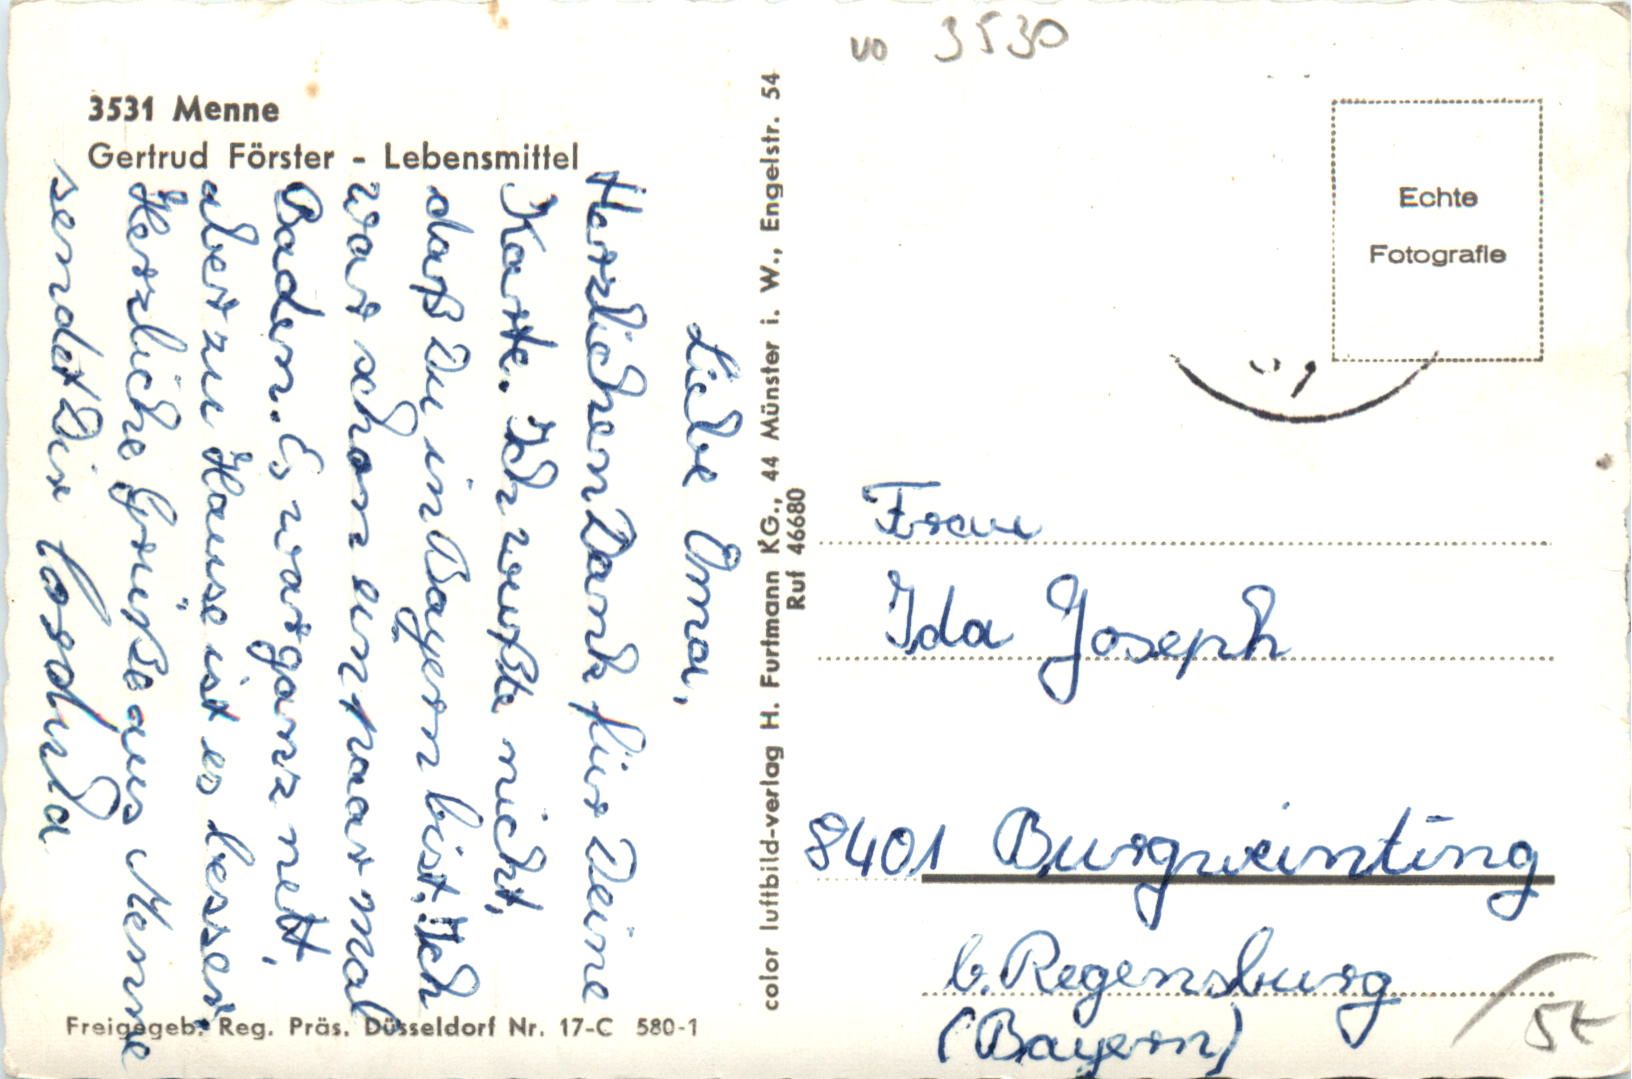 3531 Menne
Gertrud Förster - Lebensmittel
Liebe Oma,
Herzlichen Dank für Deine
Karte. Ich wußte nicht,
daß Du in Bayern bist. Ich
war schon ein paar mal
Baden. Es war ganz nett,
aber zu Hause ist es besser.
Herzliche Grüße aus Menne
sendet Dir Cordula
Freigegeb. Reg. Präs. Düsseldorf Nr. 17-C 580-1
color luftbild-verlag H. Furtmann KG., 44 Münster i. W., Engelstr. 54
Ruf 46680
vo 3530
Echte
Fotografie
Frau
Ida Joseph
8401 Burgweinting
b. Regensburg
(Bayern)
St